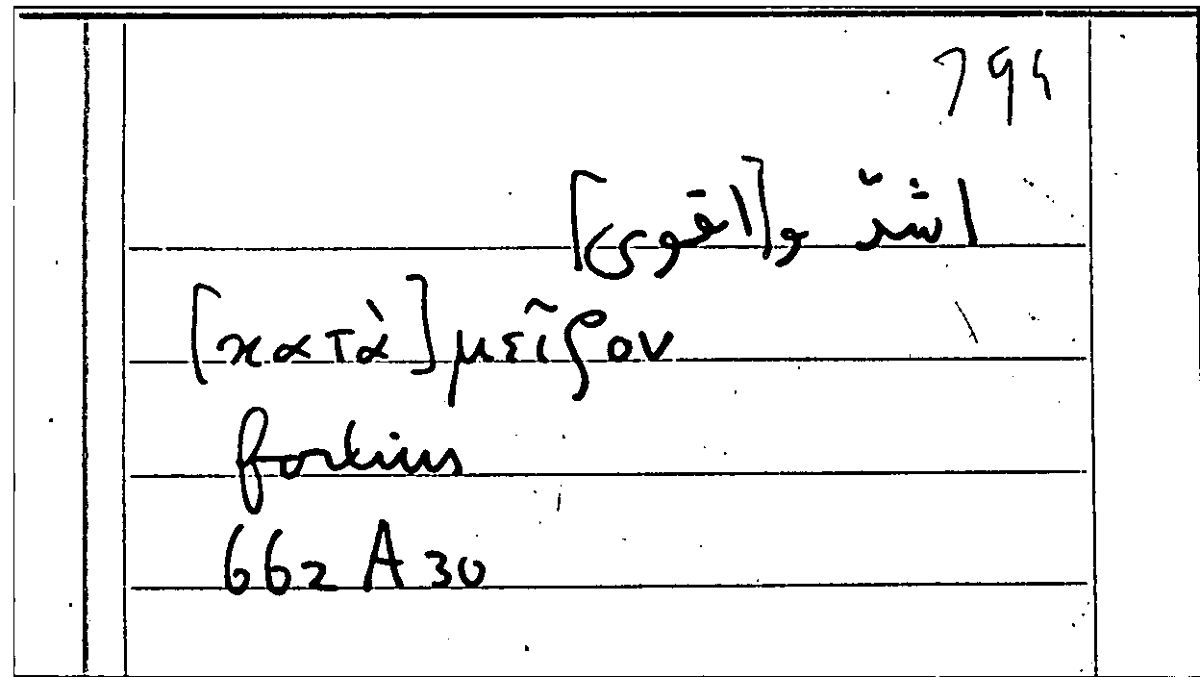 794
اشدّ و[اقوى]
[κατὰ] μεῖζον
fortius
662 A 30